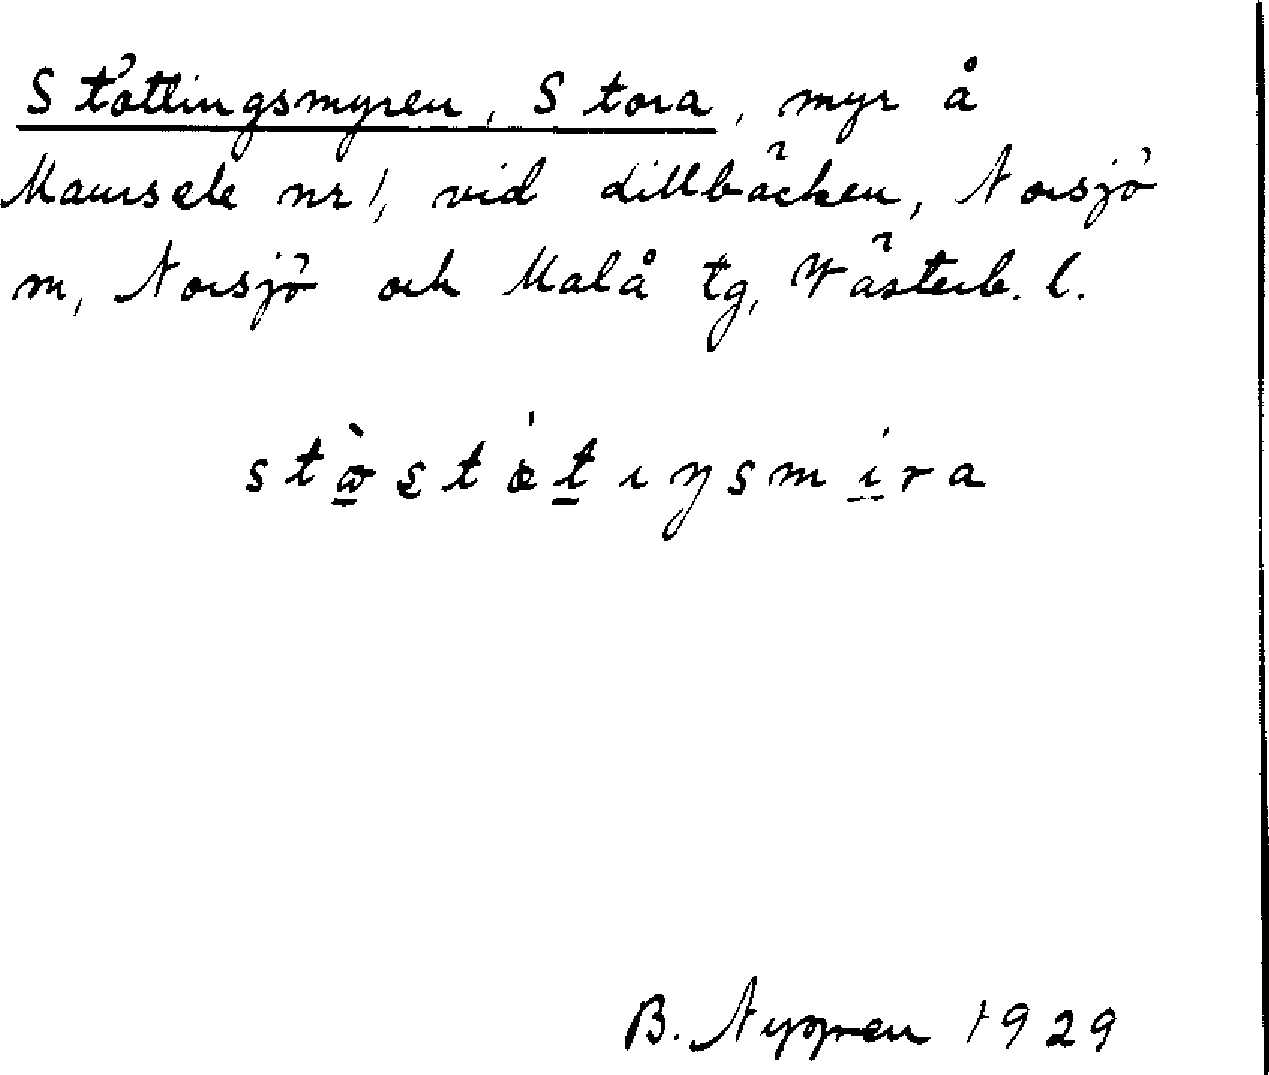 Stöttingsmyren, Stora, myr å
Maursele nr 1, vid Lillbäcken, Norsjö
m, Norsjö och Malå tg, Västerb. l.
B. 1929